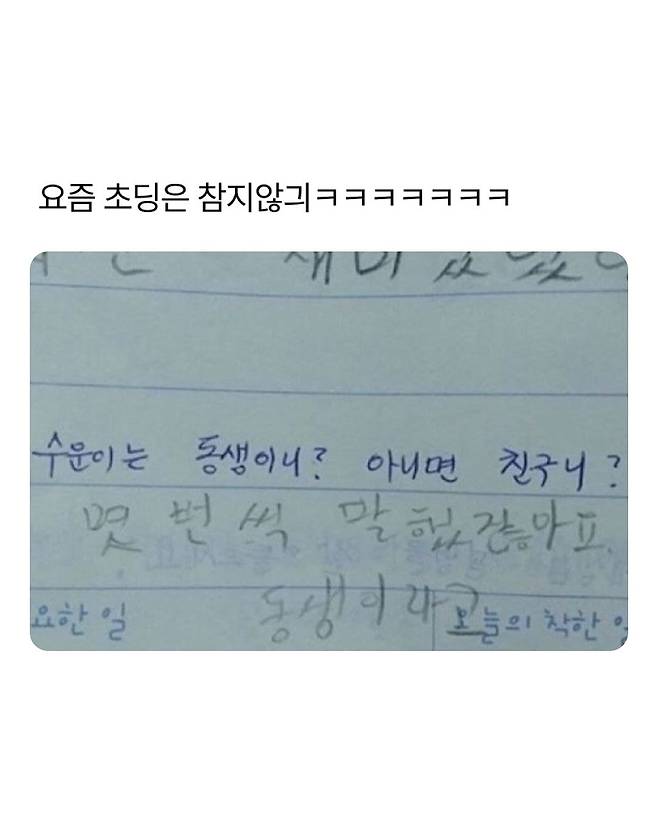 요즘 초딩은 참지않긔ㅋㅋㅋㅋㅋㅋㅋ
수운이는 동생이니? 아니면 친구니?
몇 번 씩 말 했 잖아요.
동생이라고
요한 일 오늘의 착한 일